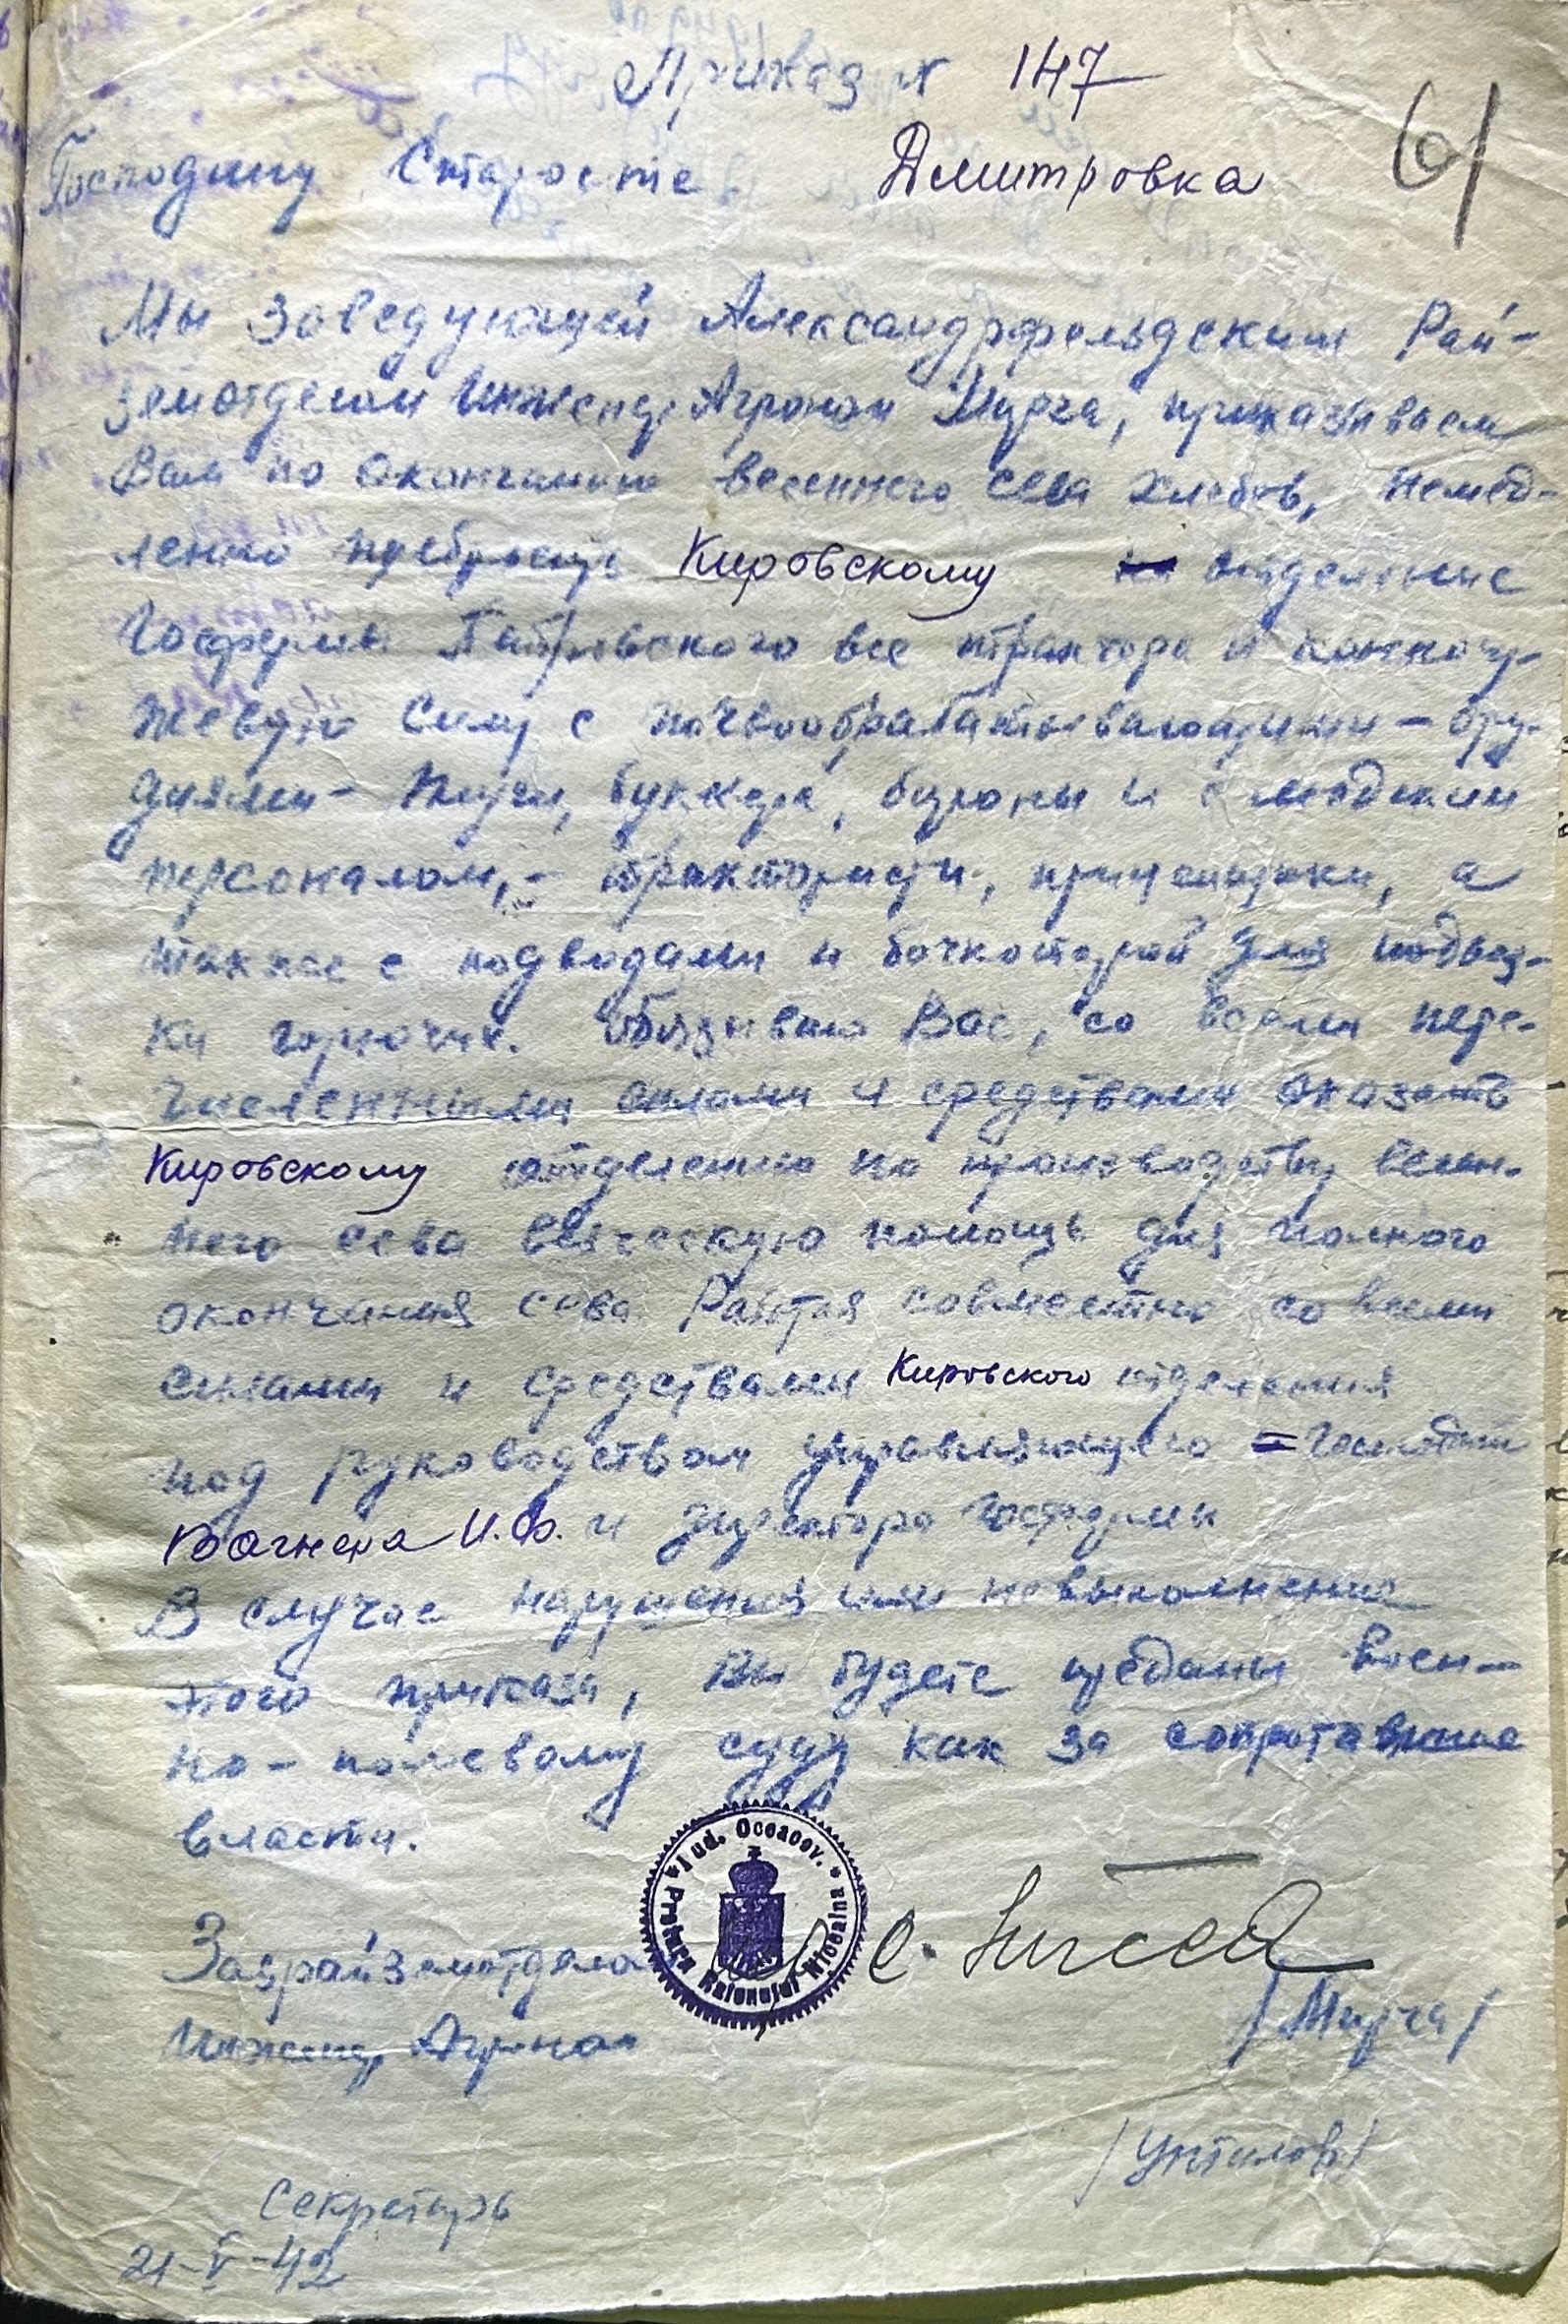 Приказ № 147
61
Господину Старосте Дмитровка
Мы заведующей Александрфельдским Рай-
земотделом Инженер Агроном Мирча, приказываем
Вам по окончанию весеннего сева хлебов, немед-
ленно пребросить Кировскому отделение
Госфермы все трактора и конногу-
жевую силу с почвообрабатывающими - ору-
диями - плуги, буккера, бороны и с людским
персоналом, - трактористи, прицепщики, а
также с подводами и бочкотарой для подвоз-
ки горючих. Обязываю Вас, со всеми пере-
численными силами и средствами оказать
Кировскому отделению по производству весен-
него сева всяческую помощь для полного
окончания сева. Работая совместно со всеми
силами и средствами Кировского отделения
под руководством управляющего
Вагнера И.Ф. и директора Госфермы
В случае нарушения или невыполнения
этого приказа, Вы будете преданы воен-
но - полевому суду как за сопротавление
власти.
Iud. Oceacov. * Pretura Raionului Nicoalna *
Заврайземотдела
Инженер Агроном /Мирча/
Секретарь /Унтилов/
21-V-42